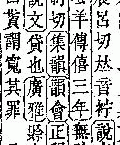 切𠀤音紵說
羊傳僖三年無
制切集韻韻會正
說文貸也廣雅
貰謂寬其罪